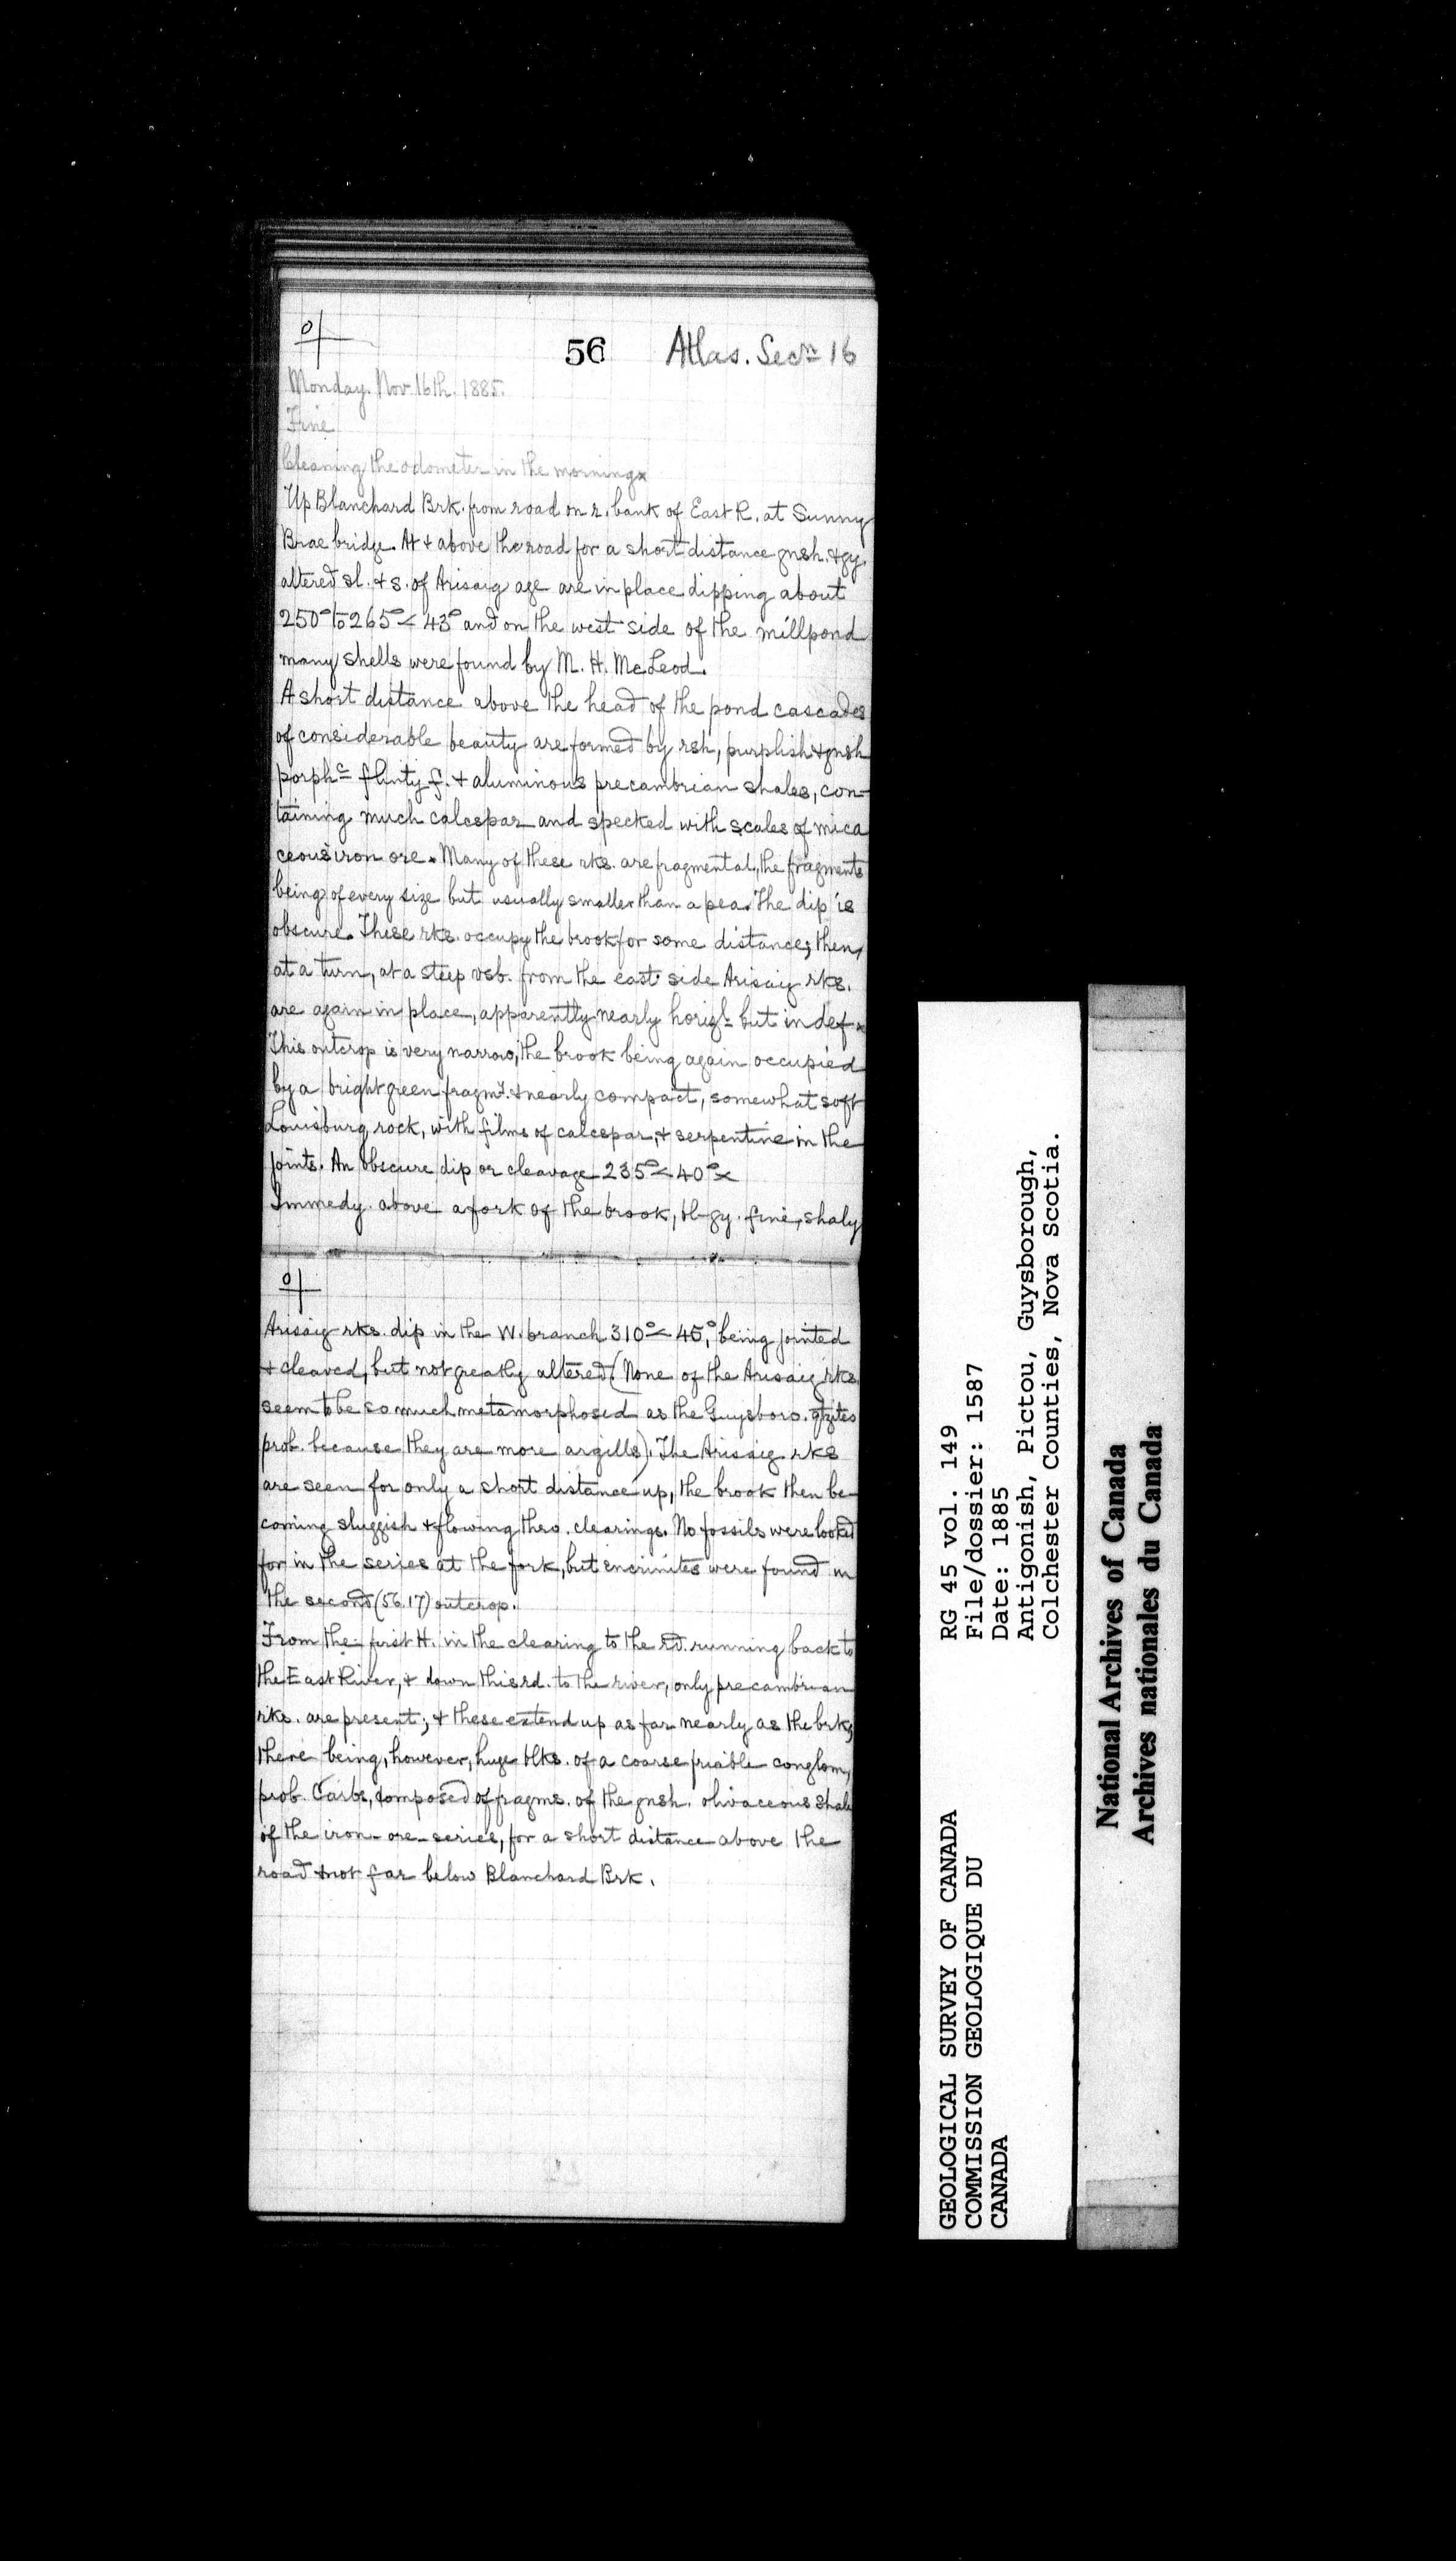 56 Atlas. Secn 16
Monday. Nov. 16th. 1885.
Fine
Cleaning the odometer in the morning x
Up Blanchard Brk. from road on r. bank of East R. at Sunny
Brae bridge. At + above the road for a short distance gnsh. + gy.
altered sl. + s. of Arisaig age are in place dipping about
250° to 265° < 43° and on the west side of the millpond
many shells were found by M. H. McLeod.
A short distance above the head of the pond cascades
of considerable beauty are formed by rsh, purplish + gnsh
porphc flinty f. + aluminous precambrian shales, con-
taining much calcspar and specked with scales of mica
ceous iron ore. Many of these rks. are fragmental, the fragments
being of every size but usually smaller than a pea. The dip is
obscure. These rks. occupy the brook for some distance; then,
at a turn, at a steep vsb. from the east side Arisaig rks.
are again in place, apparently nearly horizl but indef. x
This outcrop is very narrow, the brook being again occupied
by a bright green fragml. + nearly compact, somewhat soft
Louisburg rock, with films of calcspar, + serpentine in the
joints. An obscure dip or cleavage 235° < 40° x
Immedy. above a fork of the brook, bl-gy. fine, shaly
Arisaig rks. dip in the W. branch 310° < 45°, being jointed
+ cleaved, but not greatly altered (None of the Arisaig rks.
seem to be so much metamorphosed as the Guysboro. qtzites
prob. because they are more argills). The Arisaig rks
are seen for only a short distance up, the brook then be-
coming sluggish + flowing thro. clearings. No fossils were looked
for in the series at the fork, but encrinites were found in
the second (56.17) outcrop.
From the first H. in the clearing to the rd. running back to
the East River, + down this rd. to the river, only precambrian
rks. are present; + these extend up as far nearly as the brk,
there being, however, huge blks. of a coarse friable conglom,
prob. Carbs, composed of fragms. of the gnsh. olivaceous shale
of the iron-ore-series, for a short distance above the
road + not far below Blanchard Brk.
GEOLOGICAL SURVEY OF CANADA
COMMISSION GEOLOGIQUE DU
CANADA
RG 45 vol. 149
File/dossier: 1587
Date: 1885
Antigonish, Pictou, Guysborough,
Colchester Counties, Nova Scotia.
National Archives of Canada
Archives nationales du Canada